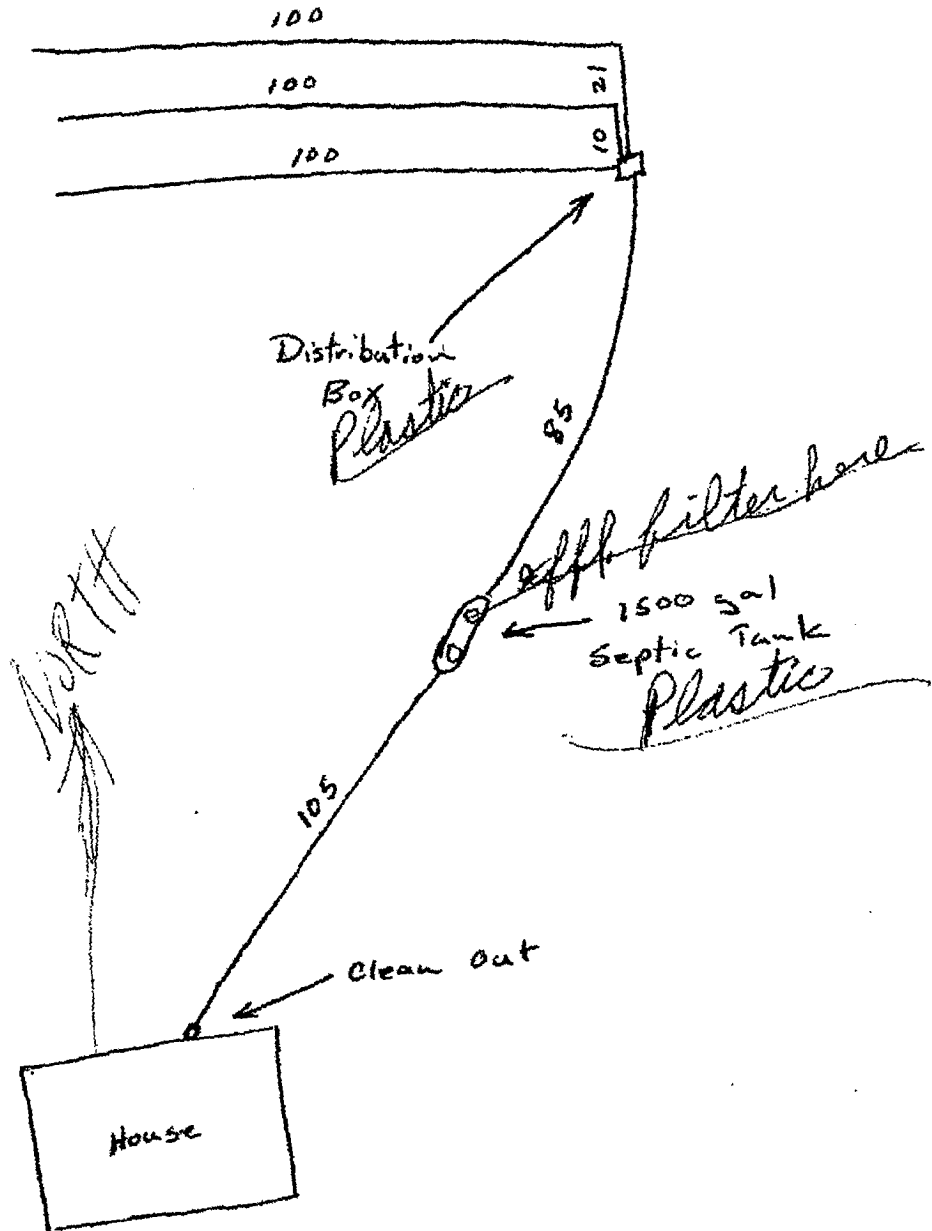 100
100
21
10
100
Distribution
Box
Plastic
85
effl. filter here
1500 gal
Septic Tank
Plastic
NORTH
105
Clean Out
House